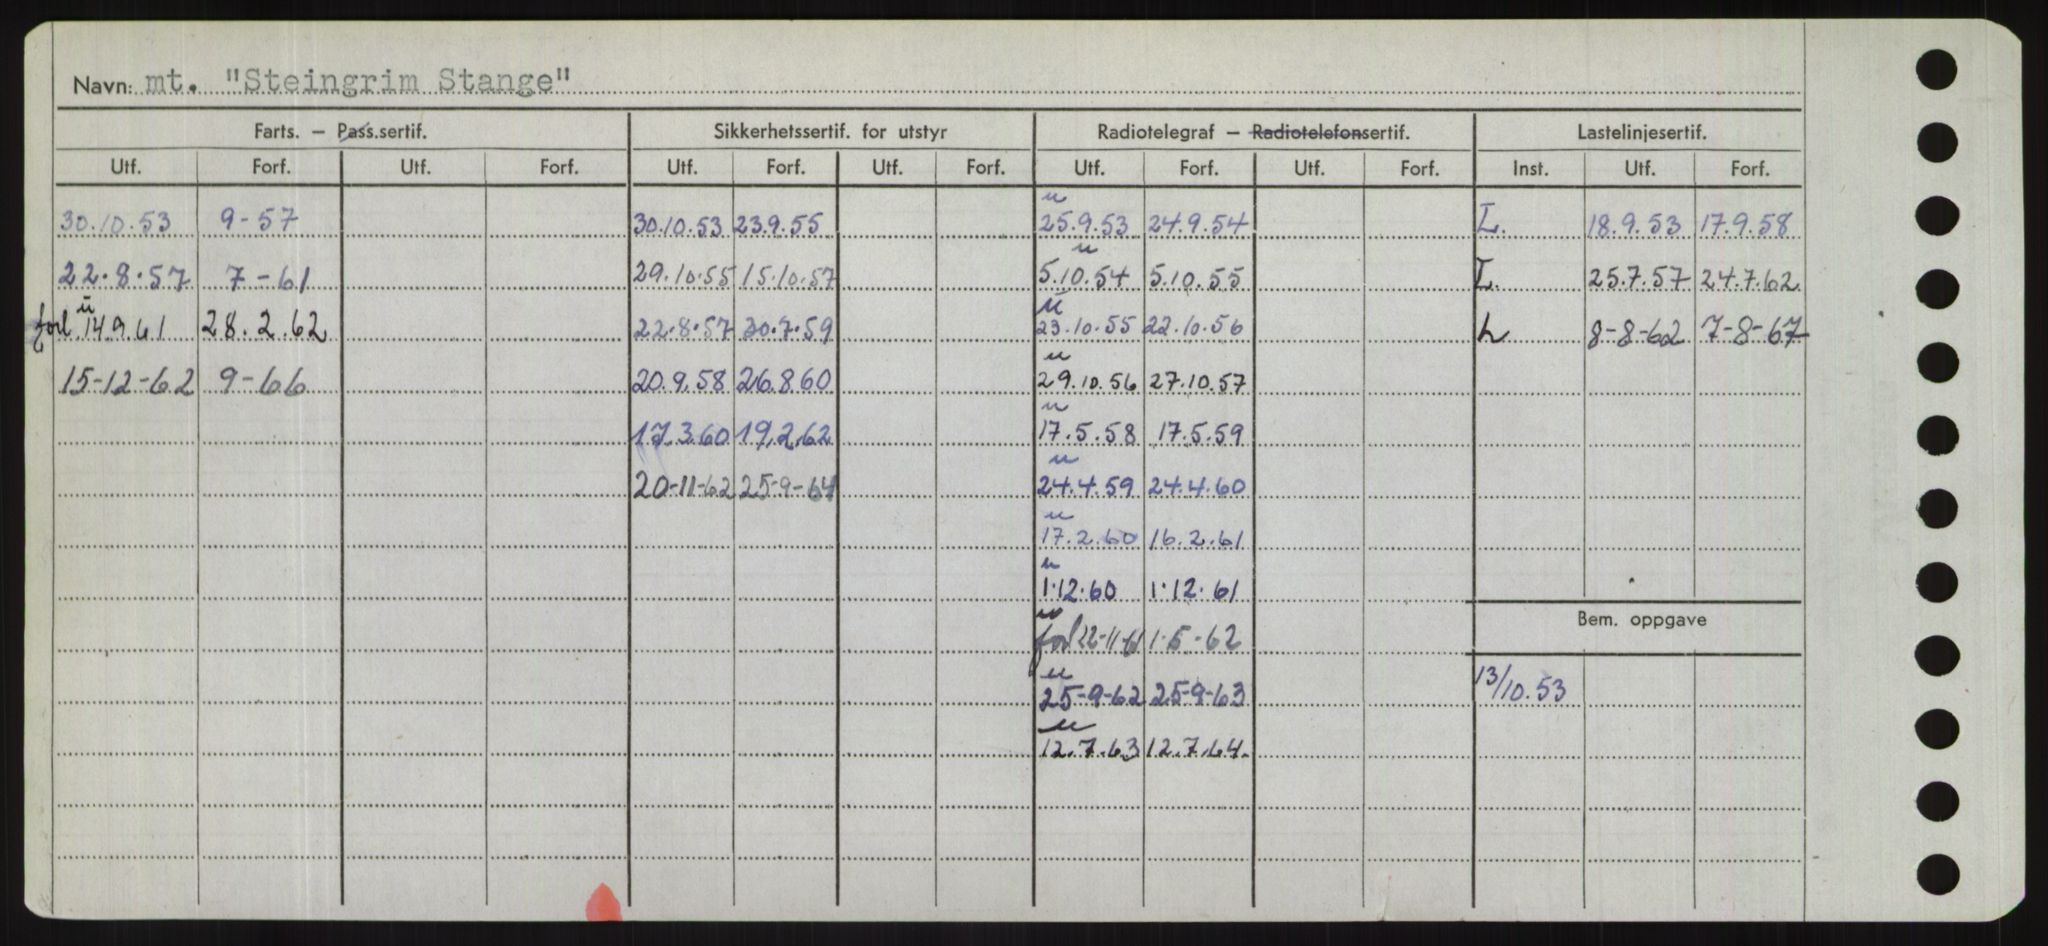 Navn: mt. "Steingrim Stange"
Farts. — Pass.sertif. Sikkerhetssertif. for utstyr Radiotelegraf — Radiotelefonsertif. Lastelinjesertif.
Utf. Forf. Utf. Forf. Utf. Forf. Utf. Forf. Utf. Forf. Utf. Forf. Inst. Utf. Forf.
u
30.10.53 9-57 30.10.53 23.9.55 25.9.53 24.9.54 L. 18.9.53 17.9.58
u
22.8.57 7-61 29.10.55 15.10.57 5.10.54 5.10.55 L. 25.7.57 24.7.62
u u
forl 14.9.61 28.2.62 22.8.57 30.7.59 23.10.55 22.10.56 L 8-8-62 7-8-67
u
15-12-62 9-66 20.9.58 26.8.60 29.10.56 27.10.57
u
17.3.60 19.2.62 17.5.58 17.5.59
u
20-11-62 25-9-64 24.4.59 24.4.60
u
17.2.60 16.2.61
u
1.12.60 1.12.61
u
forl 22-11-61 1-5-62
Bem. oppgave
u
25-9-62 25-9-63 13/10.53
u
12.7.63 12.7.64.